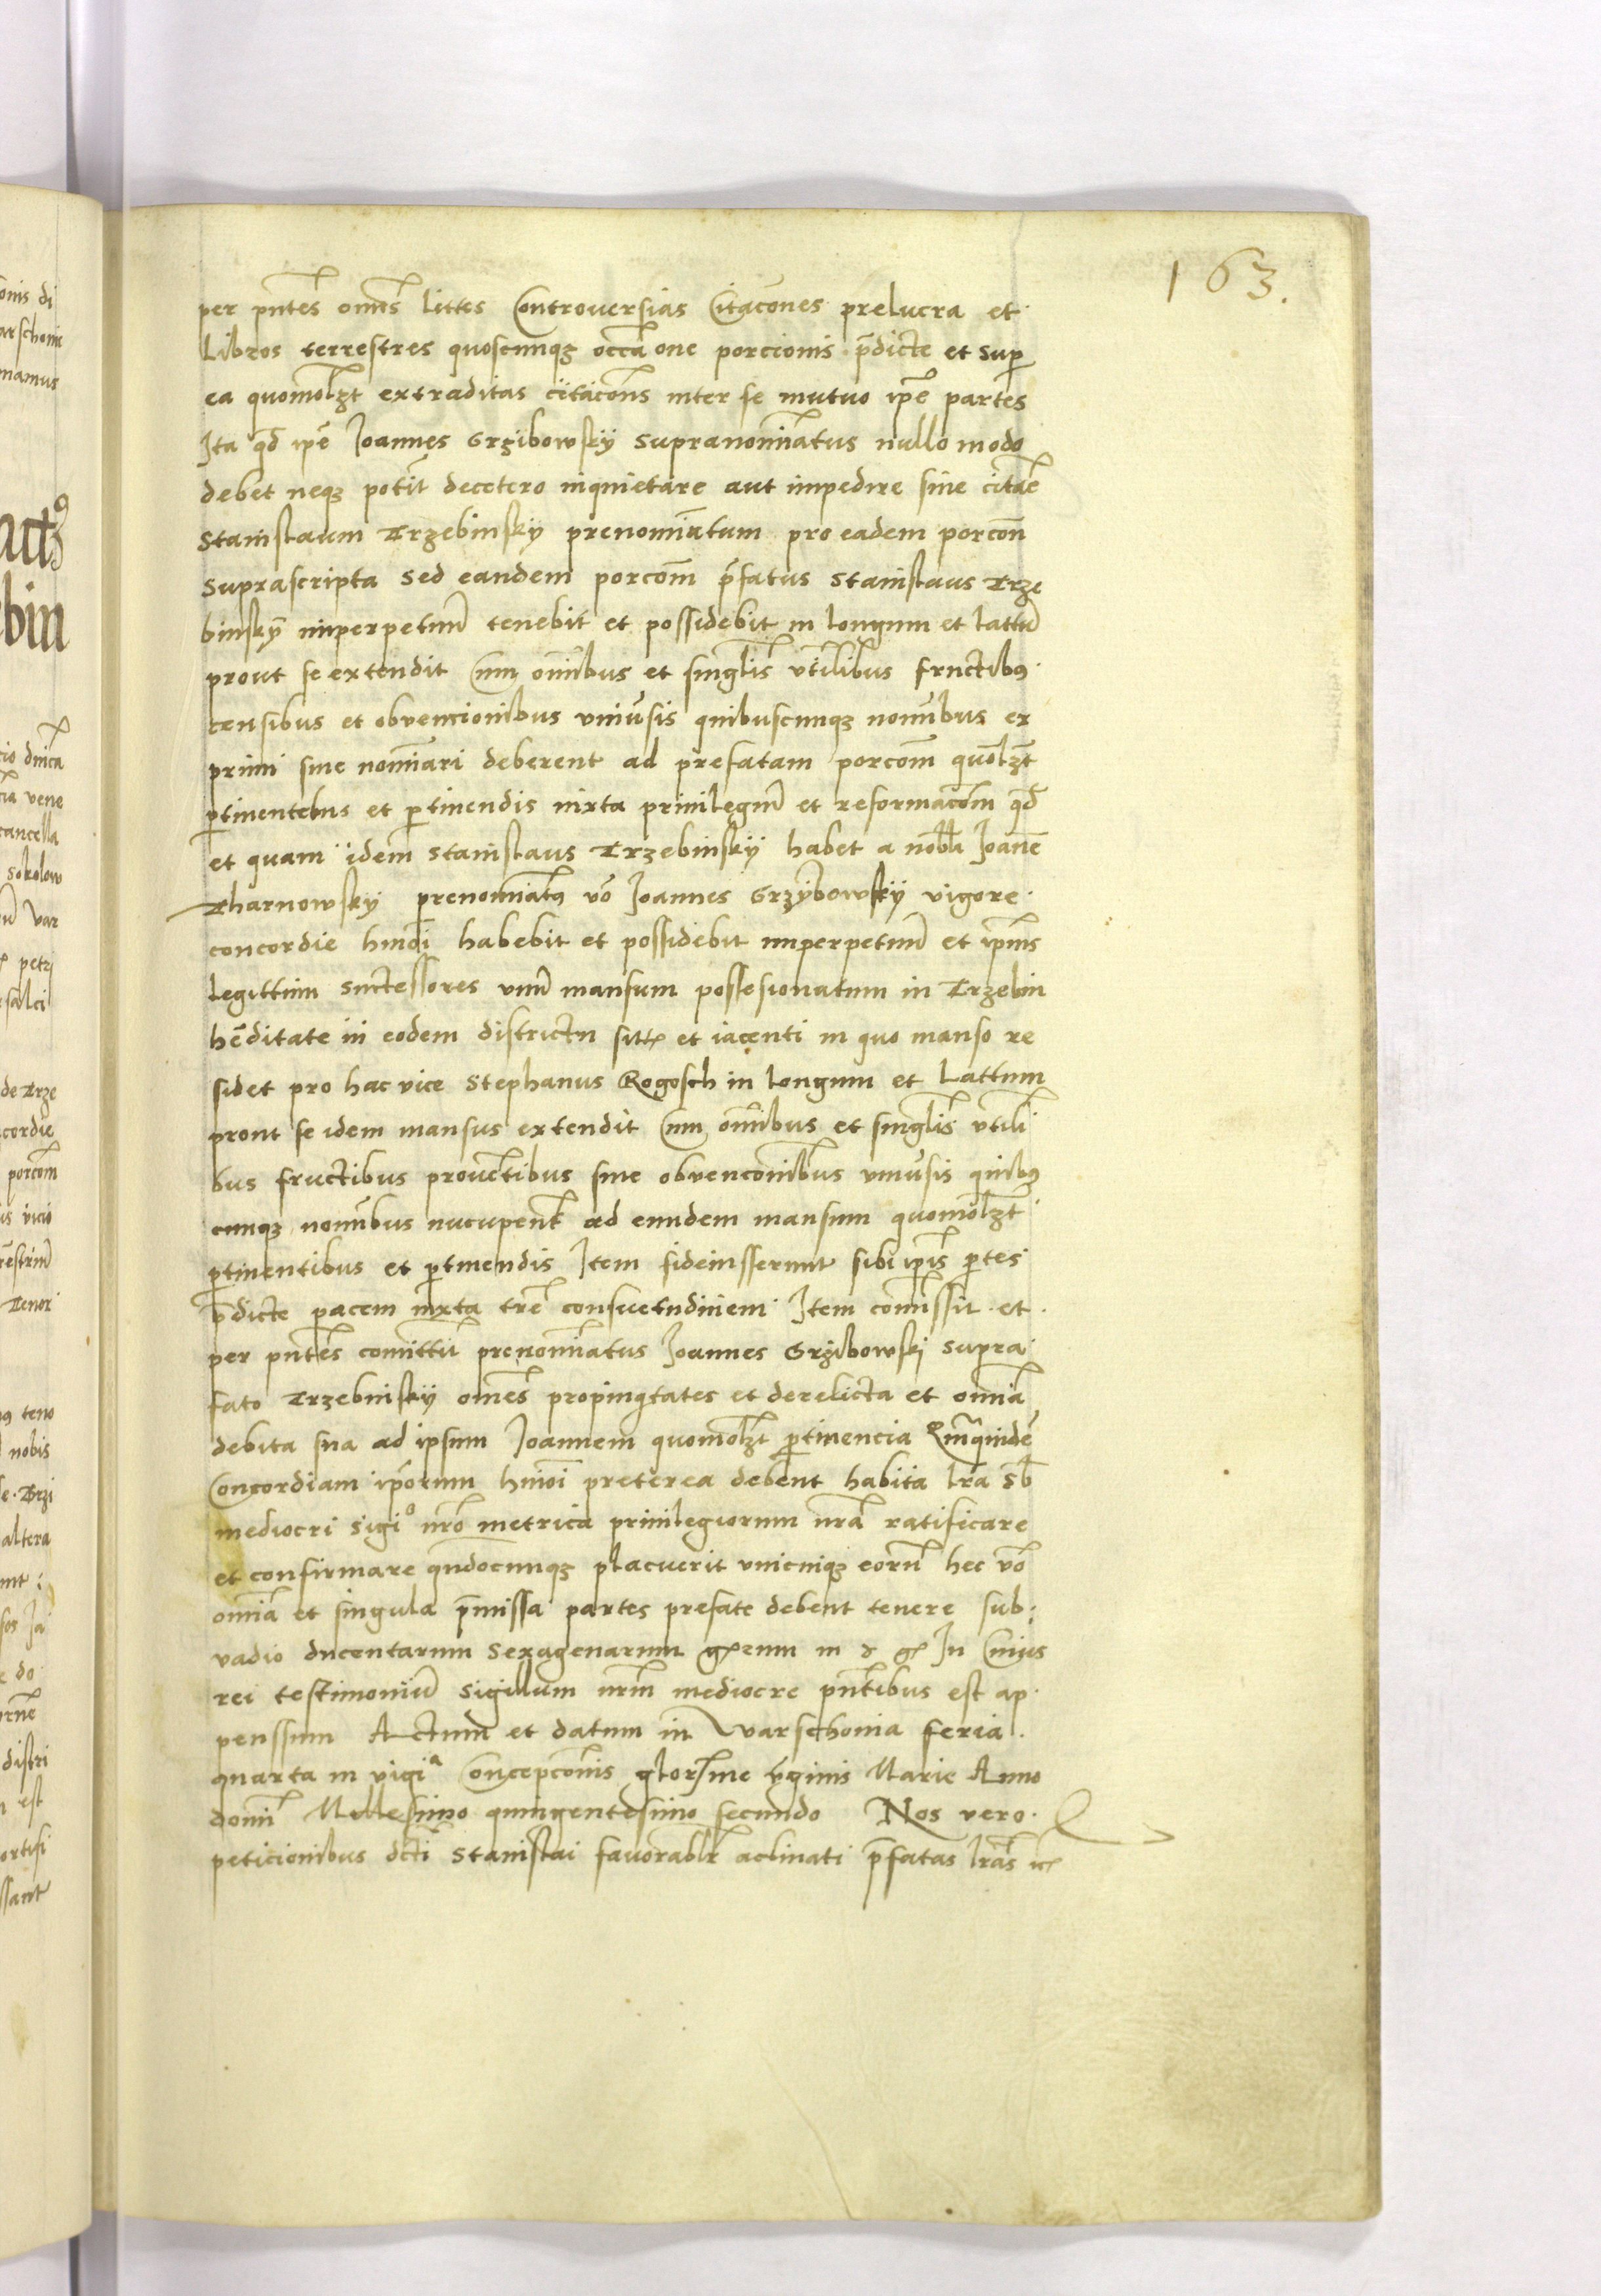 163.
per pntes omes littes Controuersias Citacones prelucra et
Libros terrestres quoscunqz occa one porcionis pdicte et sup
ea quomolzt extraditas citacons inter se mutuo ipe partes
Ita qd ipe Joannes Grzibowskÿ supranomiatus nullo modo
debet neqz potit decetero inquietare aut impedire siue citae
Stanislaum Trzebinsky prenomiatum pro eadem porcon
suprascripta sed eandem porcom pfatus Stanislaus Trze
binskÿ imperpetuu tenebit et possidebit in longum et lattu
prout se extendit Cum omibus et singlis vtilibus fructibus
censibus et obvencionibus vniusis quibuscunqz nomibus ex
primi siue nomiari deberent ad prefatam porcom quolzt
ptinentebus et ptinendis iuxta priuilegiu et reformacom qd
et quam idem Stanislaus Trzebinskÿ habet a nobli Joane
Tharnowskÿ prenomiatus vo Joannes Grzÿbowskÿ vigore
concordie hmoi habebit et possidebit imperpetuu et ipius
legittimi suctessores vnu mansum possesionatum in Trzebin
heditate in eodem districtu sitt et iacenti in quo manso re
sidet pro hac vice Stephanus Rogosch in longum et Lattum
prout se idem mansus extendit Cum omibus et singlis vtili
bus fructibus prouetibus siue obvenconibus vniusis quibus
cunqz nomibus nucupent ad eundem mansum quomolzt
ptinentibus et ptinendis Item fideiusserunt sibi ipis ptes
pdicte pacem iuxta tre consuetudinem Item comissit et
per pntes comittit prenomiatus Joannes Grzibowski supra
fato Trzebinskÿ omes propinqtates et derelicta et omia
debita sua ad ipsum Joannem quomolzt ptinencia
Concordiam iporum hmoi preterea debent habita lra sb
mediocri sigio nro metrica priuilegiorum nra ratificare
et confirmare qndocunqz placuerit vnicuiqz eoru hec vo
omia et singula pmissa partes prefate debent tenere sub
vadio ducentarum sexagenarum grorum in et gr In Cuius
rei testimoniu sigillum nrm mediocre pntibus est ap
penssum Actum et datum in Warschouia feria
quarta in vigia Concepconis gloriosime vginis Marie Anno
domi Millesimo quingentesimo secundo Nos vero
peticionibus dcti Stanislai fauorablr aclinati pfatas lras